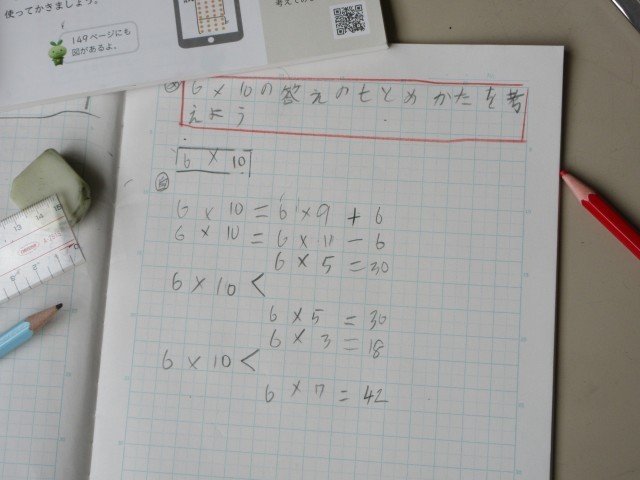 使ってかきましょう。
149ページにも
図があるよ。
6×10の答えのもとめかたを考
えよう
6×10
6×10=6×9+6
6×10=6×11-6
6×5=30
6×10<
6×5=30
6×3=18
6×10<
6×7=42